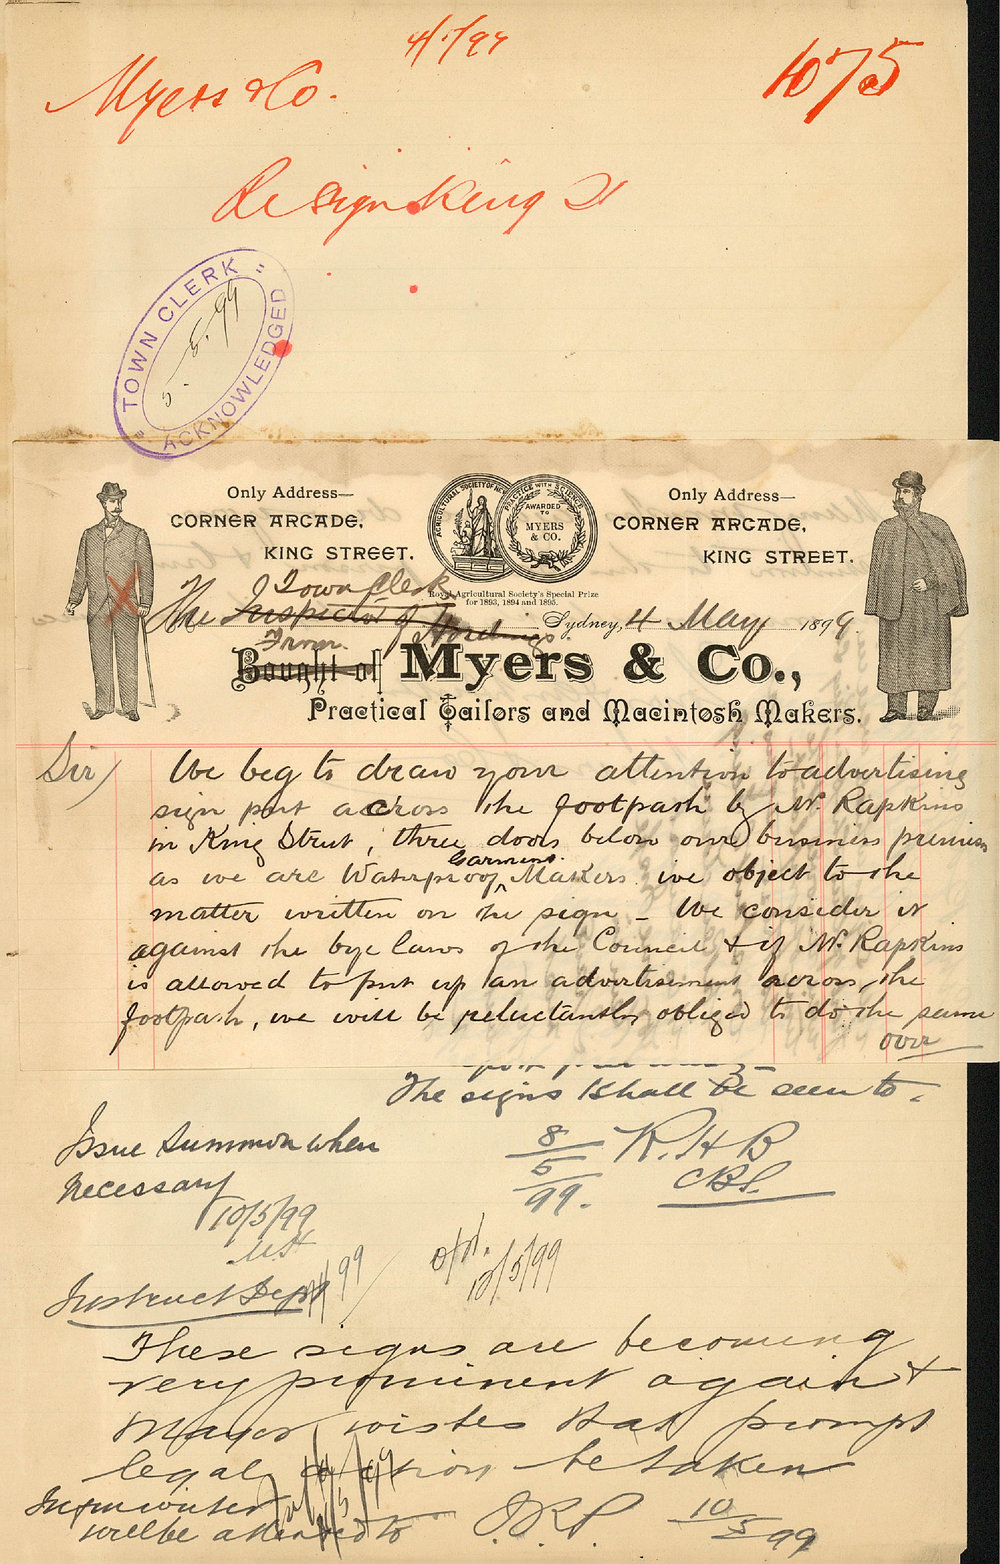 4/5/99
Myers & Co.
1075
Re Sign King St
"TOWN CLERK"
5.5.99
ACKNOWLEDGED
Only Address—
CORNER ARCADE,
KING STREET.
AGRICULTURAL SOCIETY OF NEW
PRACTICE WITH SCIENCE
AWARDED
TO
MYERS
& CO.
Royal Agricultural Society's Special Prize
for 1893, 1894 and 1895.
Only Address—
CORNER ARCADE,
KING STREET.
Town Clerk
The Inspector of Hoardings
Sydney, 4 May 1899.
From
Bought of Myers & Co.,
Practical Tailors and Macintosh Makers.
Sir/
We beg to draw your attention to advertising
sign put across the footpath by Mr. Rapkins
in King Street, three doors below our business premises
as we are Waterproof Garment Makers we object to the
matter written on the sign - We consider it
against the bye laws of the Council & if Mr. Rapkins
is allowed to put up an advertisement across the
footpath, we will be reluctantly obliged to do the same
over
The signs shall be seen to.
8/5/99. R.H.B
Issue Summon when
necessary
10/5/99
10/5/99
Instruct Dept
These signs are becoming
very prominent again &
Mayor wishes that prompt
legal action be taken
Inform writer
will be attended to
10/5/99